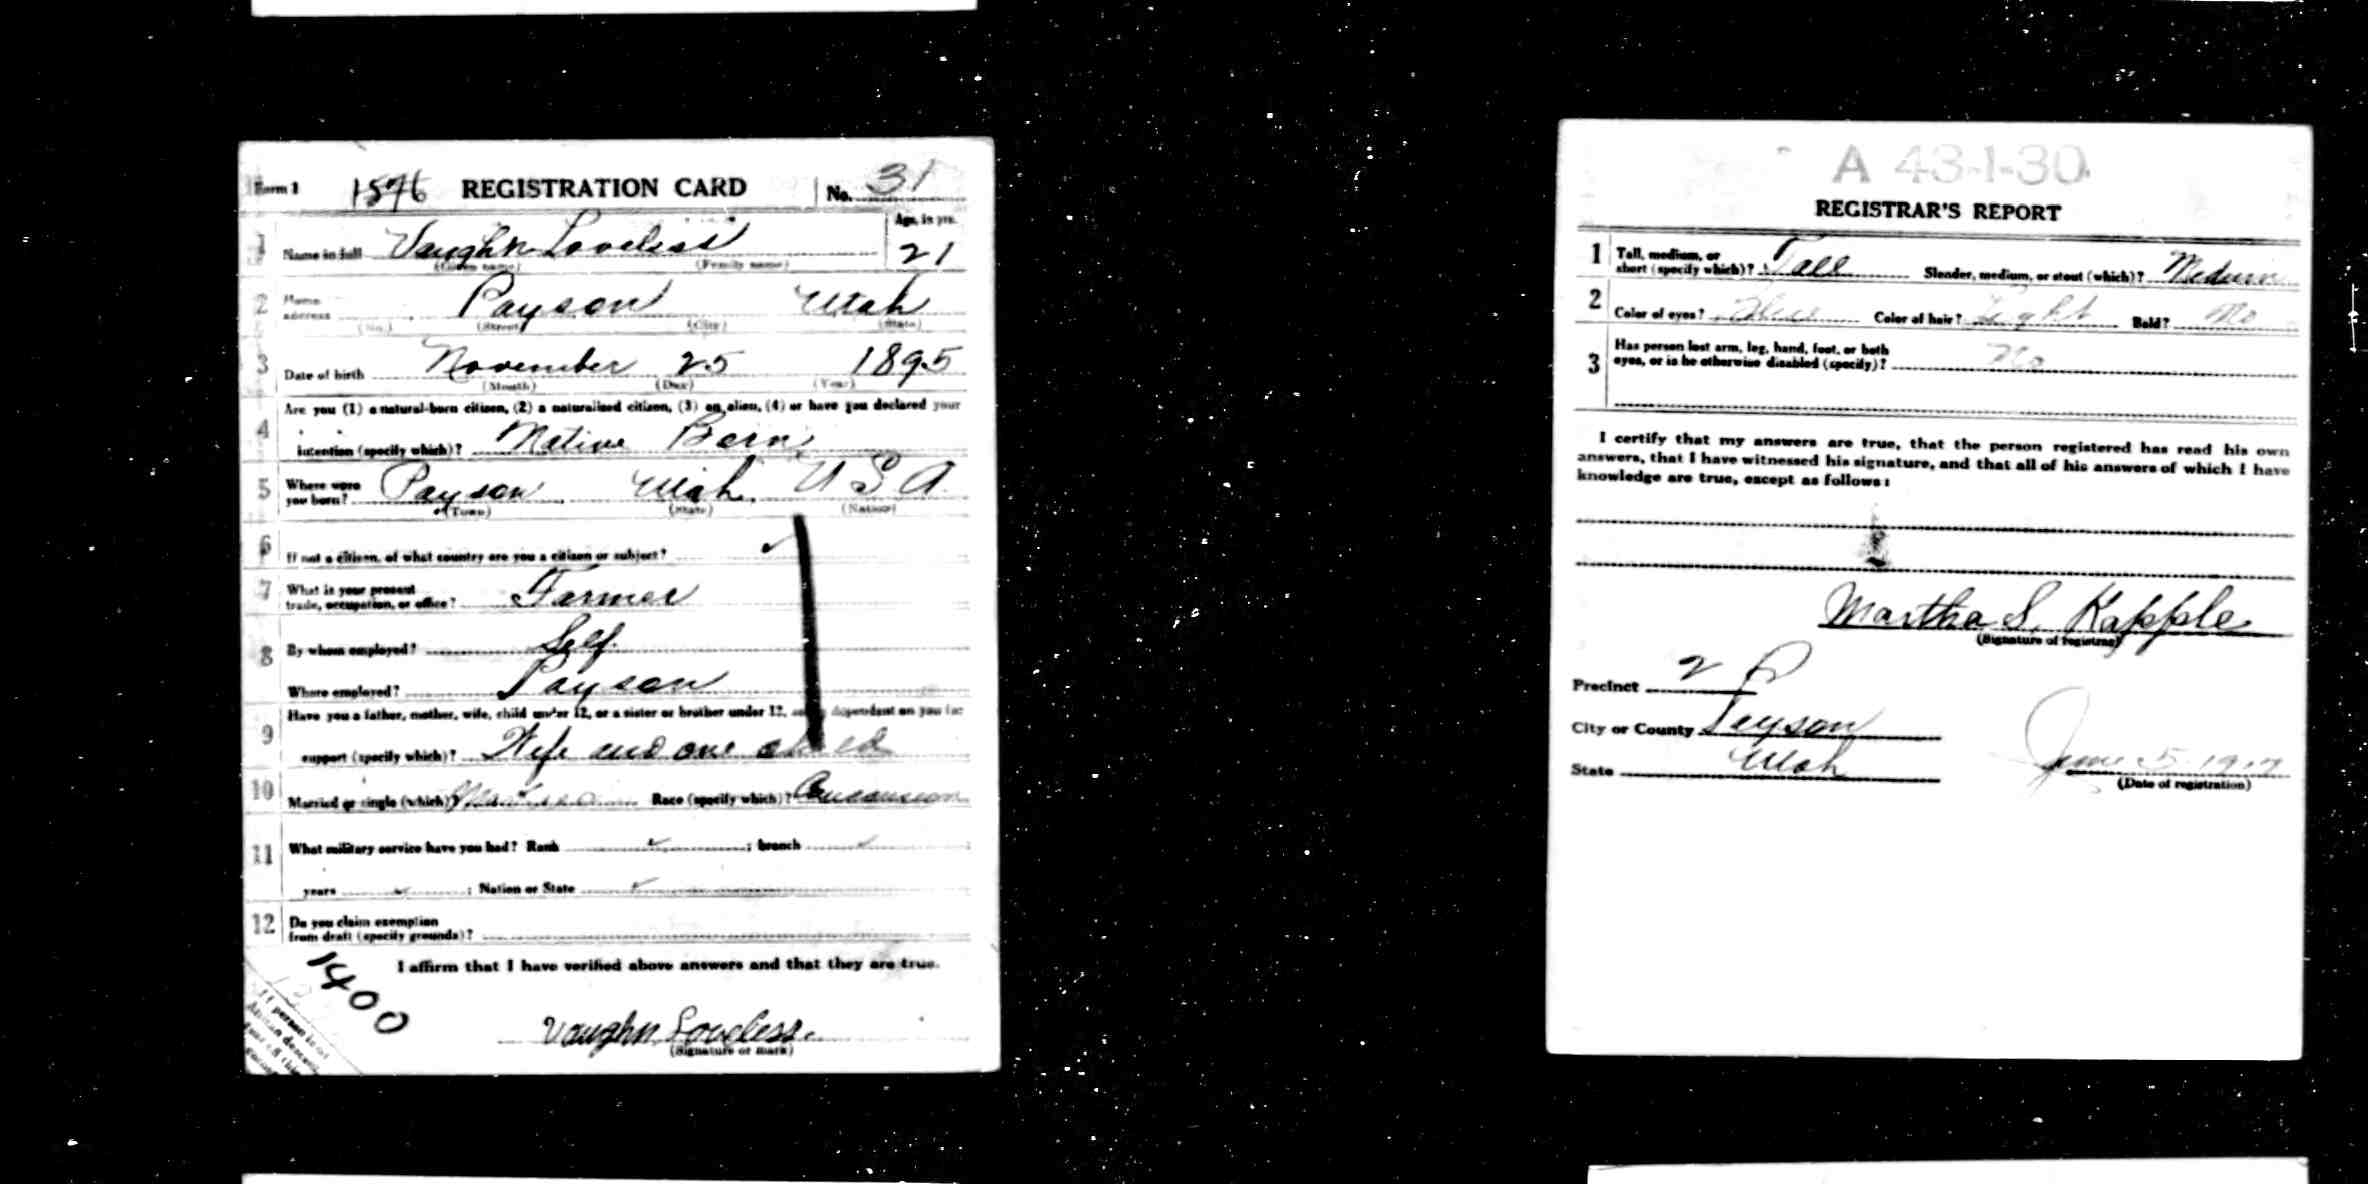 Form 1 1576 REGISTRATION CARD No. 31
1 Name in full Vaughn Loveless Age, in yrs. 21
(Given name) (Family name)
2 Home address Payson Utah
(No.) (Street) (City) (State)
3 Date of birth November 25 1895
(Month) (Day) (Year)
Are you (1) a natural-born citizen, (2) a naturalized citizen, (3) an alien, (4) or have you declared your
4 intention (specify which)? Native Born
5 Where were you born? Payson Utah U S A
(Town) (State) (Nation)
6 If not a citizen, of what country are you a citizen or subject?
7 What is your present trade, occupation, or office? Farmer
8 By whom employed? Self
Where employed? Payson
Have you a father, mother, wife, child under 12, or a sister or brother under 12, dependent on you for
9 support (specify which)? Wife and one child
10 Married or single (which)? Married Race (specify which)? Caucasian
11 What military service have you had? Rank ; branch
years ; Nation or State
12 Do you claim exemption
from draft (specify grounds)?
I affirm that I have verified above answers and that they are true.
1400
If person is of
African descent,
Vaughn Loveless.
(Signature or mark)
A 43-1-30
REGISTRAR'S REPORT
1 Tall, medium, or
short (specify which)? Tall Slender, medium, or stout (which)? Medium
2 Color of eyes? Blue Color of hair? Light Bald? No
Has person lost arm, leg, hand, foot, or both
3 eyes, or is he otherwise disabled (specify)? No
I certify that my answers are true, that the person registered has read his own
answers, that I have witnessed his signature, and that all of his answers of which I have
knowledge are true, except as follows:
Martha S. Kapple
(Signature of registrar)
Precinct 2 P
City or County Payson
State Utah
June 5 1917
(Date of registration)